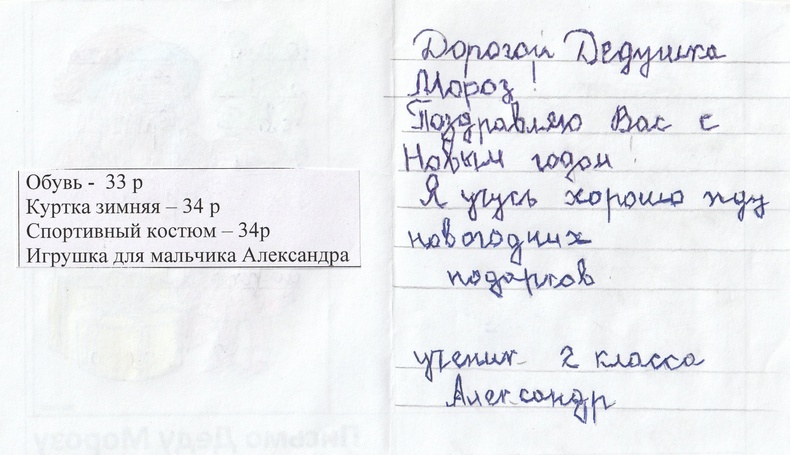 Обувь - 33 р
Куртка зимняя – 34 р
Спортивный костюм – 34р
Игрушка для мальчика Александра
Дорогой Дедушка
Мороз!
Поздравляю Вас с
Новым годом!
Я учусь хорошо жду
новогодних
подарков
ученик 2 класса
Александр
Письмо Деду Морозу